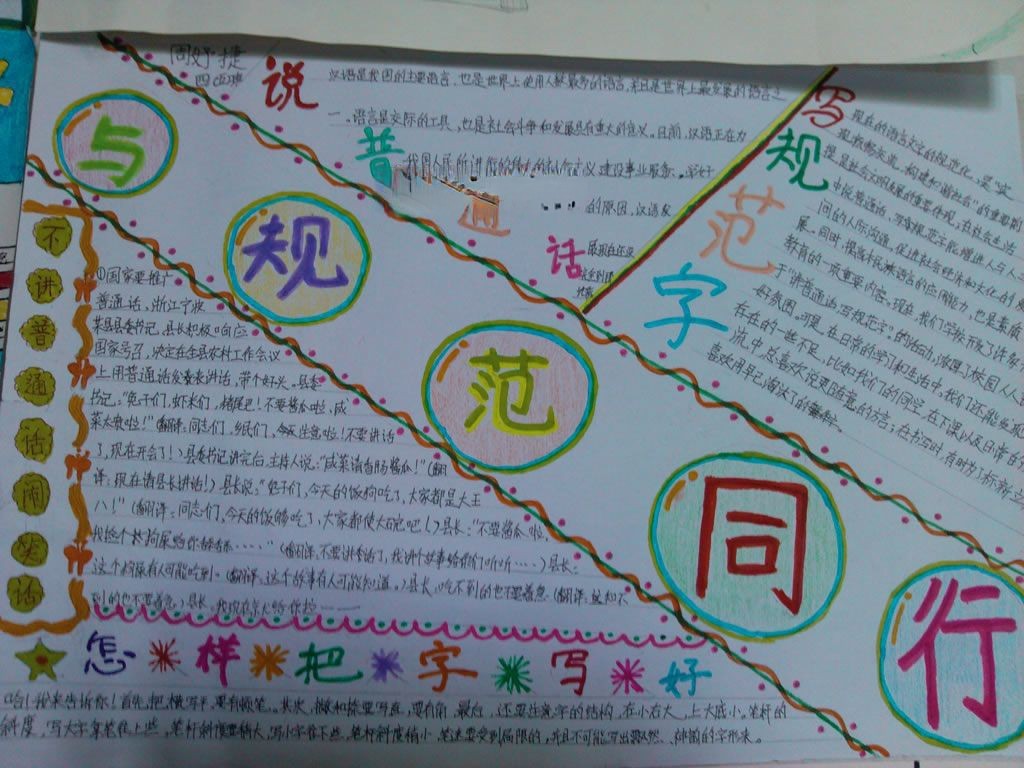 周妤捷
四(五)班
与规范同行
说普话
汉语是我国的主要语言,也是世界上使用人数最多的语言,并且是世界上最发展的语言之
一。语言是交际的工具,也是社会斗争和发展具有重大的意义。目前,汉语正在为
我国人民所进行的伟大的社会主义建设事业服务。学好
的原因,汉语发
展现在还没
写规范字
现在的语言文字的规范化,是"实
现我
构建和谐社会"的重要前
提是社会文明发展的重要体现,在社会生活
中说普通话,写规范字能增进人与人之
间的人际沟通,促进社会经济和文化的发
展。同时,提高本民族语言的应用能力,也是素质
教育的一项重要内容。现在,我们学校开展了许多
于"讲普通话,写规范字"的活动,浓厚了校园人人
好氛围。可是,在日常的学习和生活中,我们还能发现
存在的一些不足。比如我们的同学,在下课以及日常的
流中总喜欢说更随意的方言;在书写时,有时为了标新立
喜欢用早已淘汰了的
不讲普通话闹笑话
①国家要推广
普通话,浙江宁波
某县县委书记,县长积极响应
国家号召,决定在全县农村工作会议
上用普通话发表讲话,带个好头。县委
书记:"兔子们,虾米们,猪尾巴!不要酱瓜啦,咸
菜太贵啦!"(翻译:同志们,乡民们,
不要讲话
了,现在开会了!)县委书记讲完后,主持人说:"咸菜请香肠酱瓜!"(翻
译:现在请县长讲话!)县长说:"兔子们,今天的饭狗吃了,大家都是大王
八!"(翻译:同志们,今天的饭够吃了,大家都使大碗吧!)县长:"不要酱瓜啦,
我捡个狗屎给你舔舔……"(翻译:不要讲话了,我讲个故事给你们听听……)县长:
这个狗屎有人可能吃到。(翻译:这个故事有人可能知道。)县长:吃不到的也不要着急(翻译:
到的也不要着急)县长:我
怎样把字写好
哈!我来告诉你!首先,把横写平,要有顿笔。其次,撇和捺要写直,要有角。最后,还要注意字的结构,在小右大,上大底小。笔杆的
斜度,写大字拿笔往上些,笔杆斜度要稍大,写小字往下些,笔杆斜度稍小,
要受到局限的,并且不可能写出飘然、
的字形来。